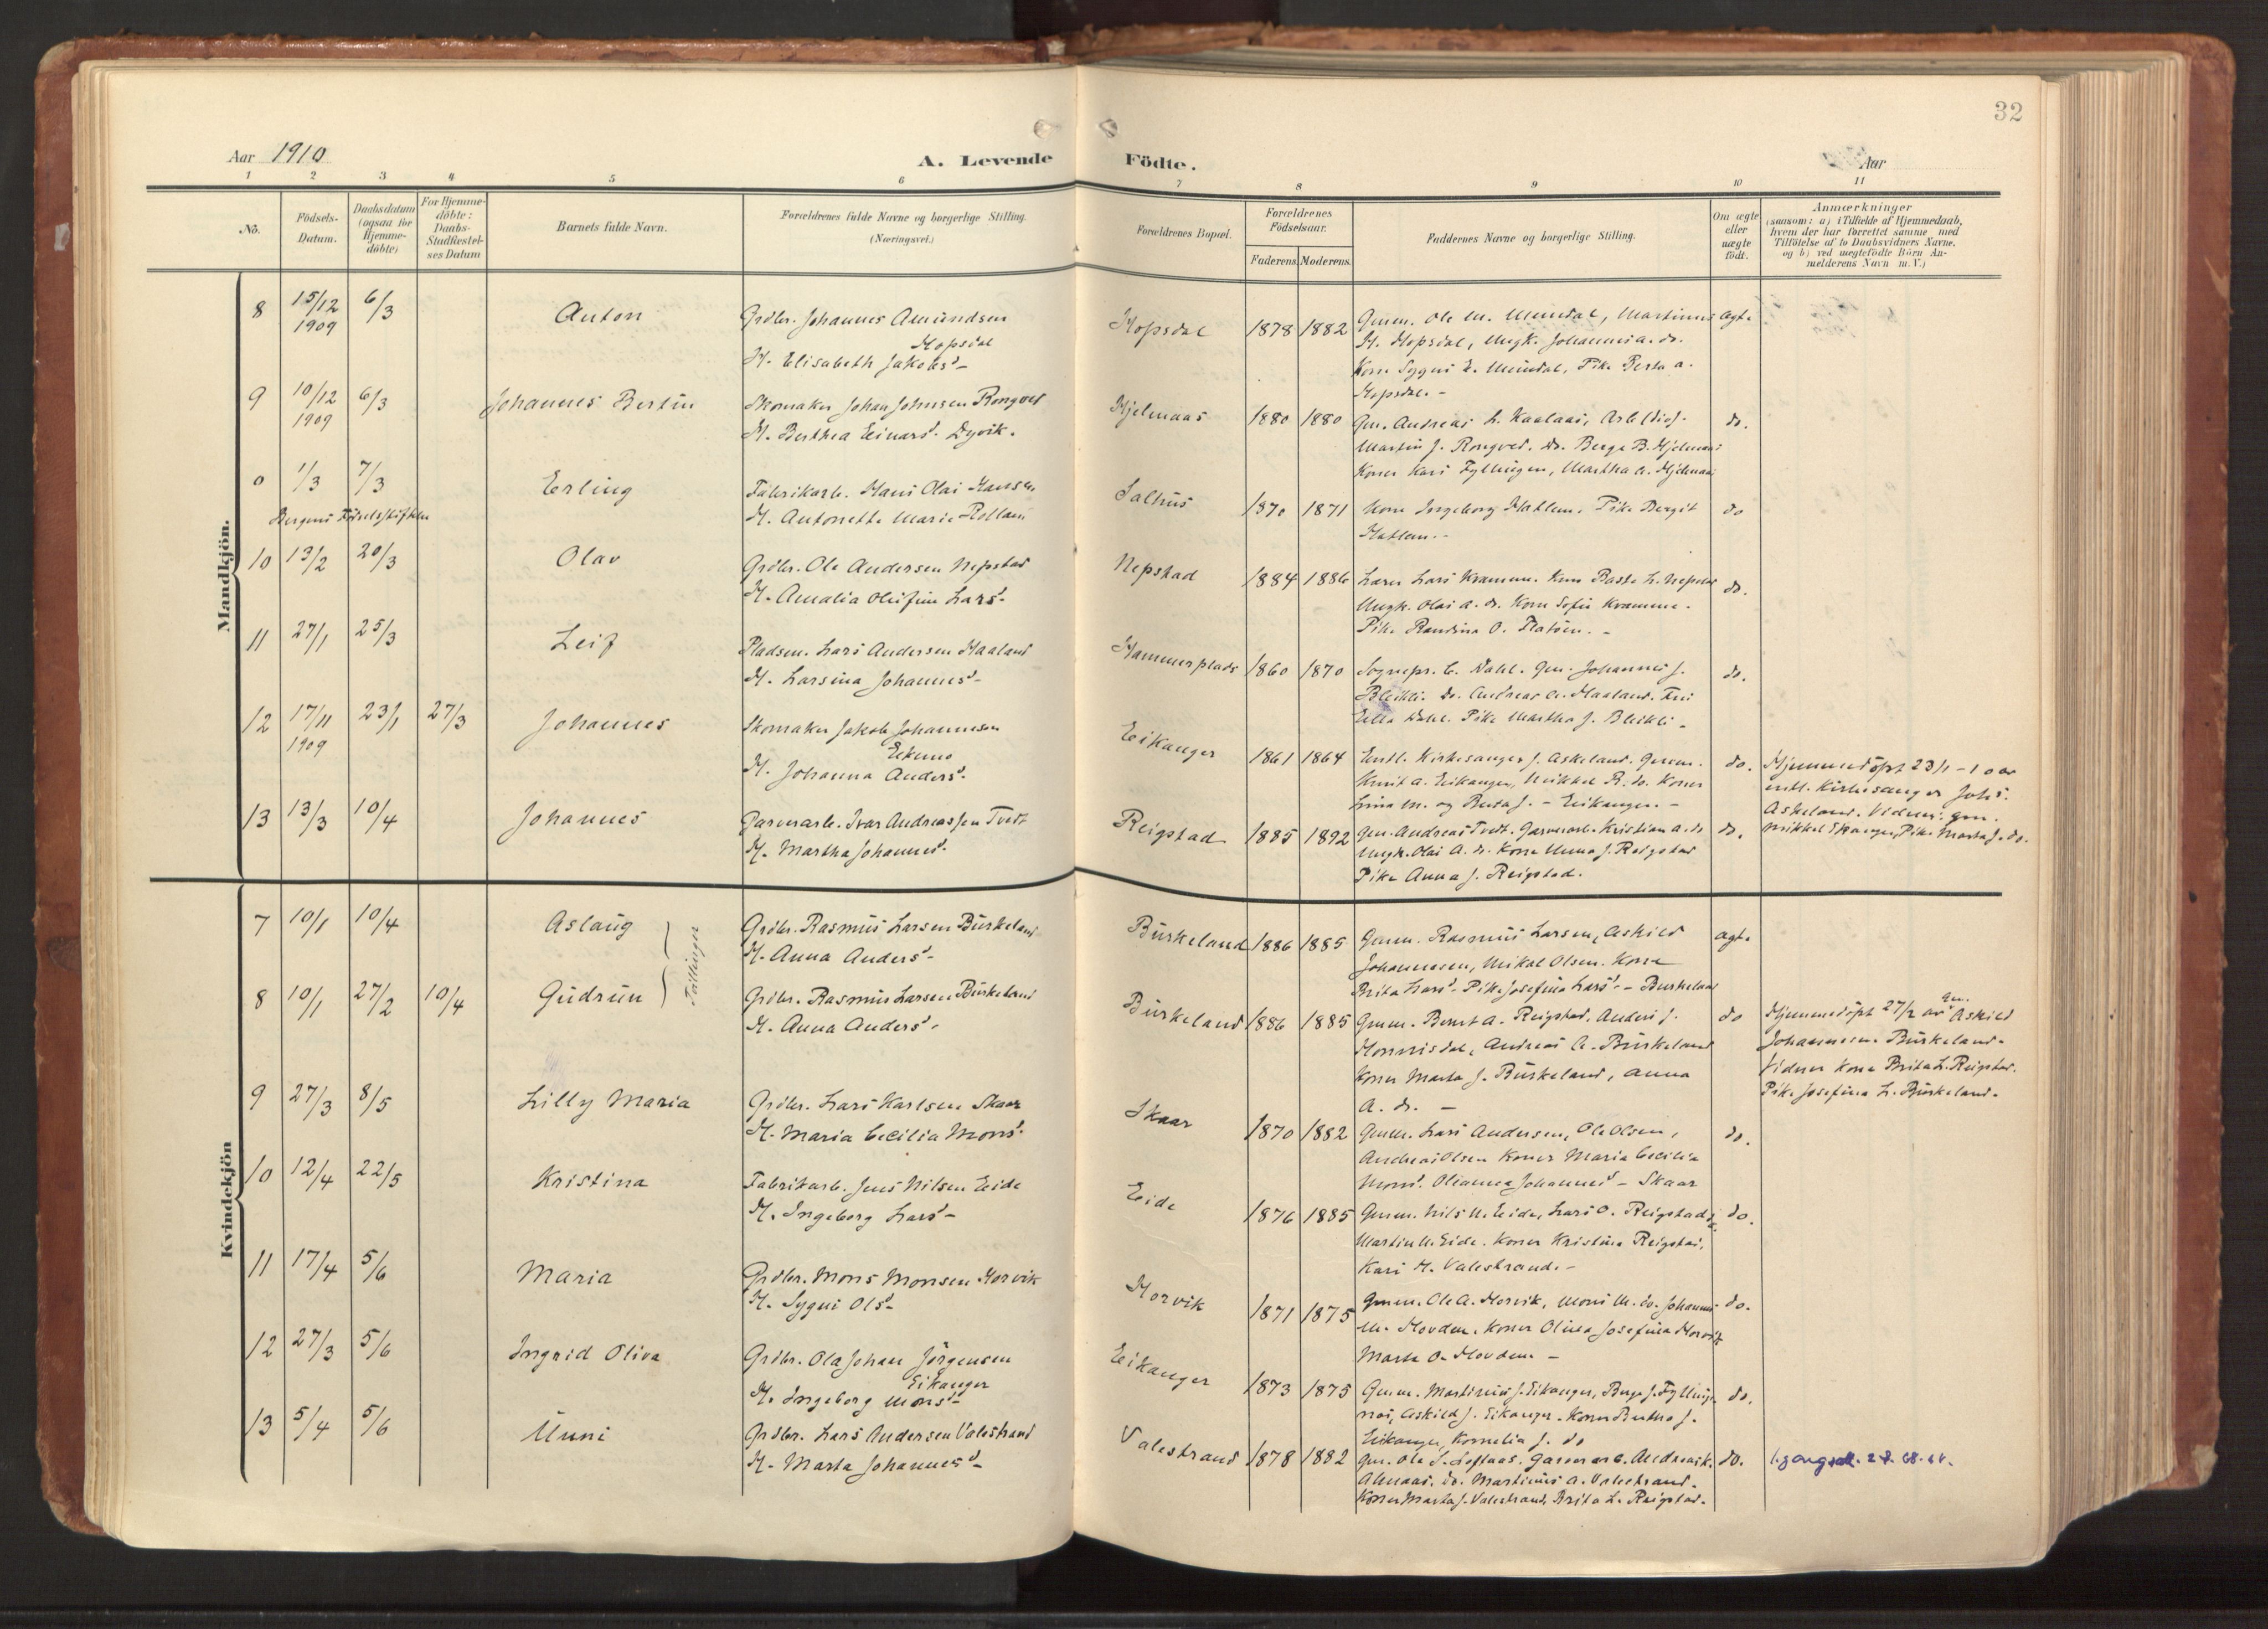 32
Aar 1910
A. Levende
Födte.
Aar
1 2 3 4 5 6 7 8 9 10 11
No.
Födsels-Datum.
Daabsdatum (ogsaa for Hjemme-döbte)
For Hjemme-döbte: Daabs-Stadfæstel-ses Datum
Barnets fulde Navn.
Forældrenes fulde Navne og borgerlige Stilling.
(Næringsvei.)
Forældrenes Bopæl.
Forældrenes Födselsaar.
Faderens. Moderens.
Faddernes Navne og borgerlige Stilling.
Om ægte eller uægte födt.
Anmærkninger
(saasom: a) i Tilfælde af Hjemmedaab,
hvem der har forrettet samme, med
Tilföielse af to Daabsvidners Navne,
og b) ved uægtefödte Börn An-
melderens Navn m. V.)
Mandkjön.
8 15/12 1909 6/3 Anton
Grdbr. Johannes Amundsen
Hopsdal
H. Elisabeth Jakobsd-
Hopsdal 1878 1882
Gmm. Ole M. Mundal, Martinus
H. Hopsdal, Ungk. Johannes a. do.
Kone Sygni E. Mundal, Pike Berta a.
Hopsdal. -
ægte
9 10/12 1909 6/3 Johannes Bertin
Skomaker Johan Johnsen Rongved
H. Berthea Einarsd. Dyvik.
Hjelmaas 1880 1880
Gm. Andreas L. Kaalaas, Arb.
Martin J. Rongved. do. Berge B. Hjelmaas
Koner Kari Fyllingen, Martha A. Hjelmaas
do.
0 1/3 7/3 Erling
Bergens Födselsstiftelse
Fabrikarb. Hans Olai Hansen
H. Antonette Marie
Salhus 1870 1871
Kone Ingeborg Hatlem. Pike Bergit
Hatlem. -
do
10 13/2 20/3 Olav
Grdbr. Ole Andersen Nepstad
H. Amalia Olufine Larsd-
Nepstad 1884 1886
Lærer Lars Kramme. Kone Basta L. Nepstad
Ungk. Olai A. do. Kone Sofie Kramme.
Pike Randina O. Flatöen. -
do.
11 27/1 25/3 Leif
Pladsm. Lars Andersen Haaland
H. Larsina Johannesd-
Hammerplads 1860 1870
Sognepr. C. Dahl. Gm. Johannes J.
Bleikli. do. Andreas A. Haaland. Fru
Ella Dahl. Pike Martha J. Bleikli -
do.
12 17/11 1909 23/1 27/3 Johannes
Skomaker Jakob Johannesen
Ekemo
H. Johanna Andersd.
Eikanger 1861 1864
Entl. Kirkesanger J. Askeland. Gmm.
Knut A. Eikanger, Mikkel R. do. Koner
Lina M. og Berta J. - Eikanger. -
do.
Hjemmedöpt 23/1 - 10 av
entl. Kirkesanger Johs.
Askeland. Vidner: gm.
Mikkel Eikanger, Pike Marta J. do.
13 13/3 10/4 Johannes
Garverarb. Ivar Andreassen Tvedt
H. Martha Johannesd.
Reigstad 1885 1892
Gm. Andreas Tvedt. Garverarb. Kristian A. do
Ungk. Olai A. do. Kone Unna J. Reigstad
Pike Anna J. Reigstad.
do.
Kvindekjön
7 10/1 10/4 Aslaug
Tvillinger
Grdbr. Rasmus Larsen Burkeland
H. Anna Andersd-
Burkeland 1886 1885
Gmm. Rasmus Larsen, Askild
Johannesen, Mikal Olsen. Kone
Brita Larsd - Pike Josefine Larsd. - Burkeland
ægte
8 10/1 27/2 10/4 Gudrun
Grdbr. Rasmus Larsen Burkeland
H. Anna Andersd.
Burkeland 1886 1885
Gmm. Bernt A. Reigstad, Anders J.
Honnisdal, Andreas A. Burkeland
Koner Marta J. Burkeland, Anna
A. do. -
do
Hjemmedöpt 27/2 av Gm. Askild
Johannesen Burkeland.
Vidner Kone Brita L. Reigstad.
Pike Josefina L. Burkeland.
9 27/3 8/5 Lilly Maria
Grdbr. Lars Karlsen Skaar
H. Maria Cecilia Monsd.
Skaar 1870 1882
Gmm. Lars Andersen, Ole Olsen,
Andreas Olsen Koner Maria Cecilia
Monsd. Oleanna Johannesd - Skaar
do.
10 12/4 22/5 Kristina
Fabrikarb. Jens Nilsen Eide
H. Ingeborg Larsd-
Eide 1876 1885
Gmm. Nils N. Eide, Lars O. Reigstad,
Martin N. Eide. Koner Kristina Reigstad,
Kari H. Valestrand. -
do.
11 17/4 5/6 Maria
Grdbr. Mons Monsen Horvik
H. Sygni Olsd-
Horvik 1871 1875
Gmm. Ole A. Horvik, Mons M. do. Johannes
M. Hovden. Koner Olina Josefina Horvik
Marta O. Hovden -
do.
12 27/3 5/6 Ingrid Oliva
Grdbr. Ola Johan Jörgensen
Eikanger
H. Ingeborg Monsd-
Eikanger 1873 1875
Gmm. Martinus J. Eikanger, Berge J. Fyllings-
nes, Askild J. Eikanger. Koner Berthe J.
Eikanger, Kornelia J. do
do.
13 5/4 5/6 Unni
Grdbr. Lars Andersen Valestrand
H. Marta Johannesd-
Valestrand 1878 1882
Gm. Ole S. Loftaas. Garverarb. Andreas K.
Almaas. do. Martinus A. Valestrand.
Koner Marta J. Valestrand, Brita L. Reigstad.
do.